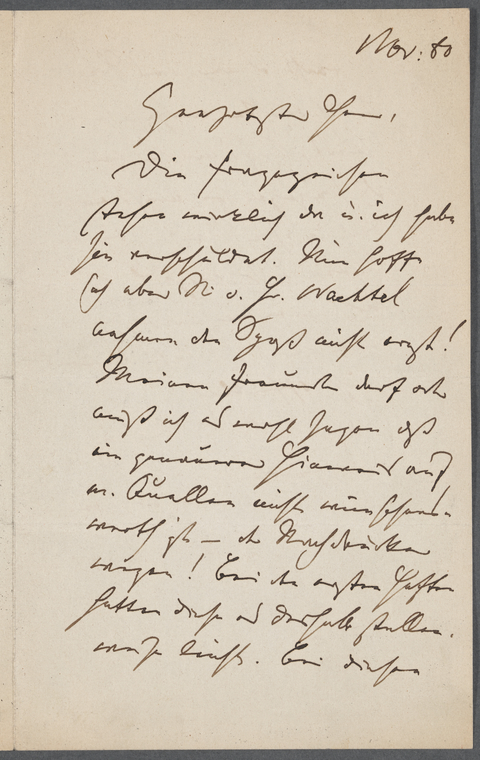 Nov: 80
Geehrtester Herr,
Die Fragezeichen
stehen wirklich da u. ich habe
sie verschuldet. Nun hoffe
ich aber Sie u. Hr. Wachtel
nehmen den Spaß nicht arg!
Meinen Freunden darf oder
muß ich es wohl sagen daß
ein genauerer Hinweis auf
m. Quellen nicht wünschens-
werth ist — der Nachdrucker
wegen! Bei den ersten Heften
hatten diese es deshalb stellen-
weise leicht. Bei diesen